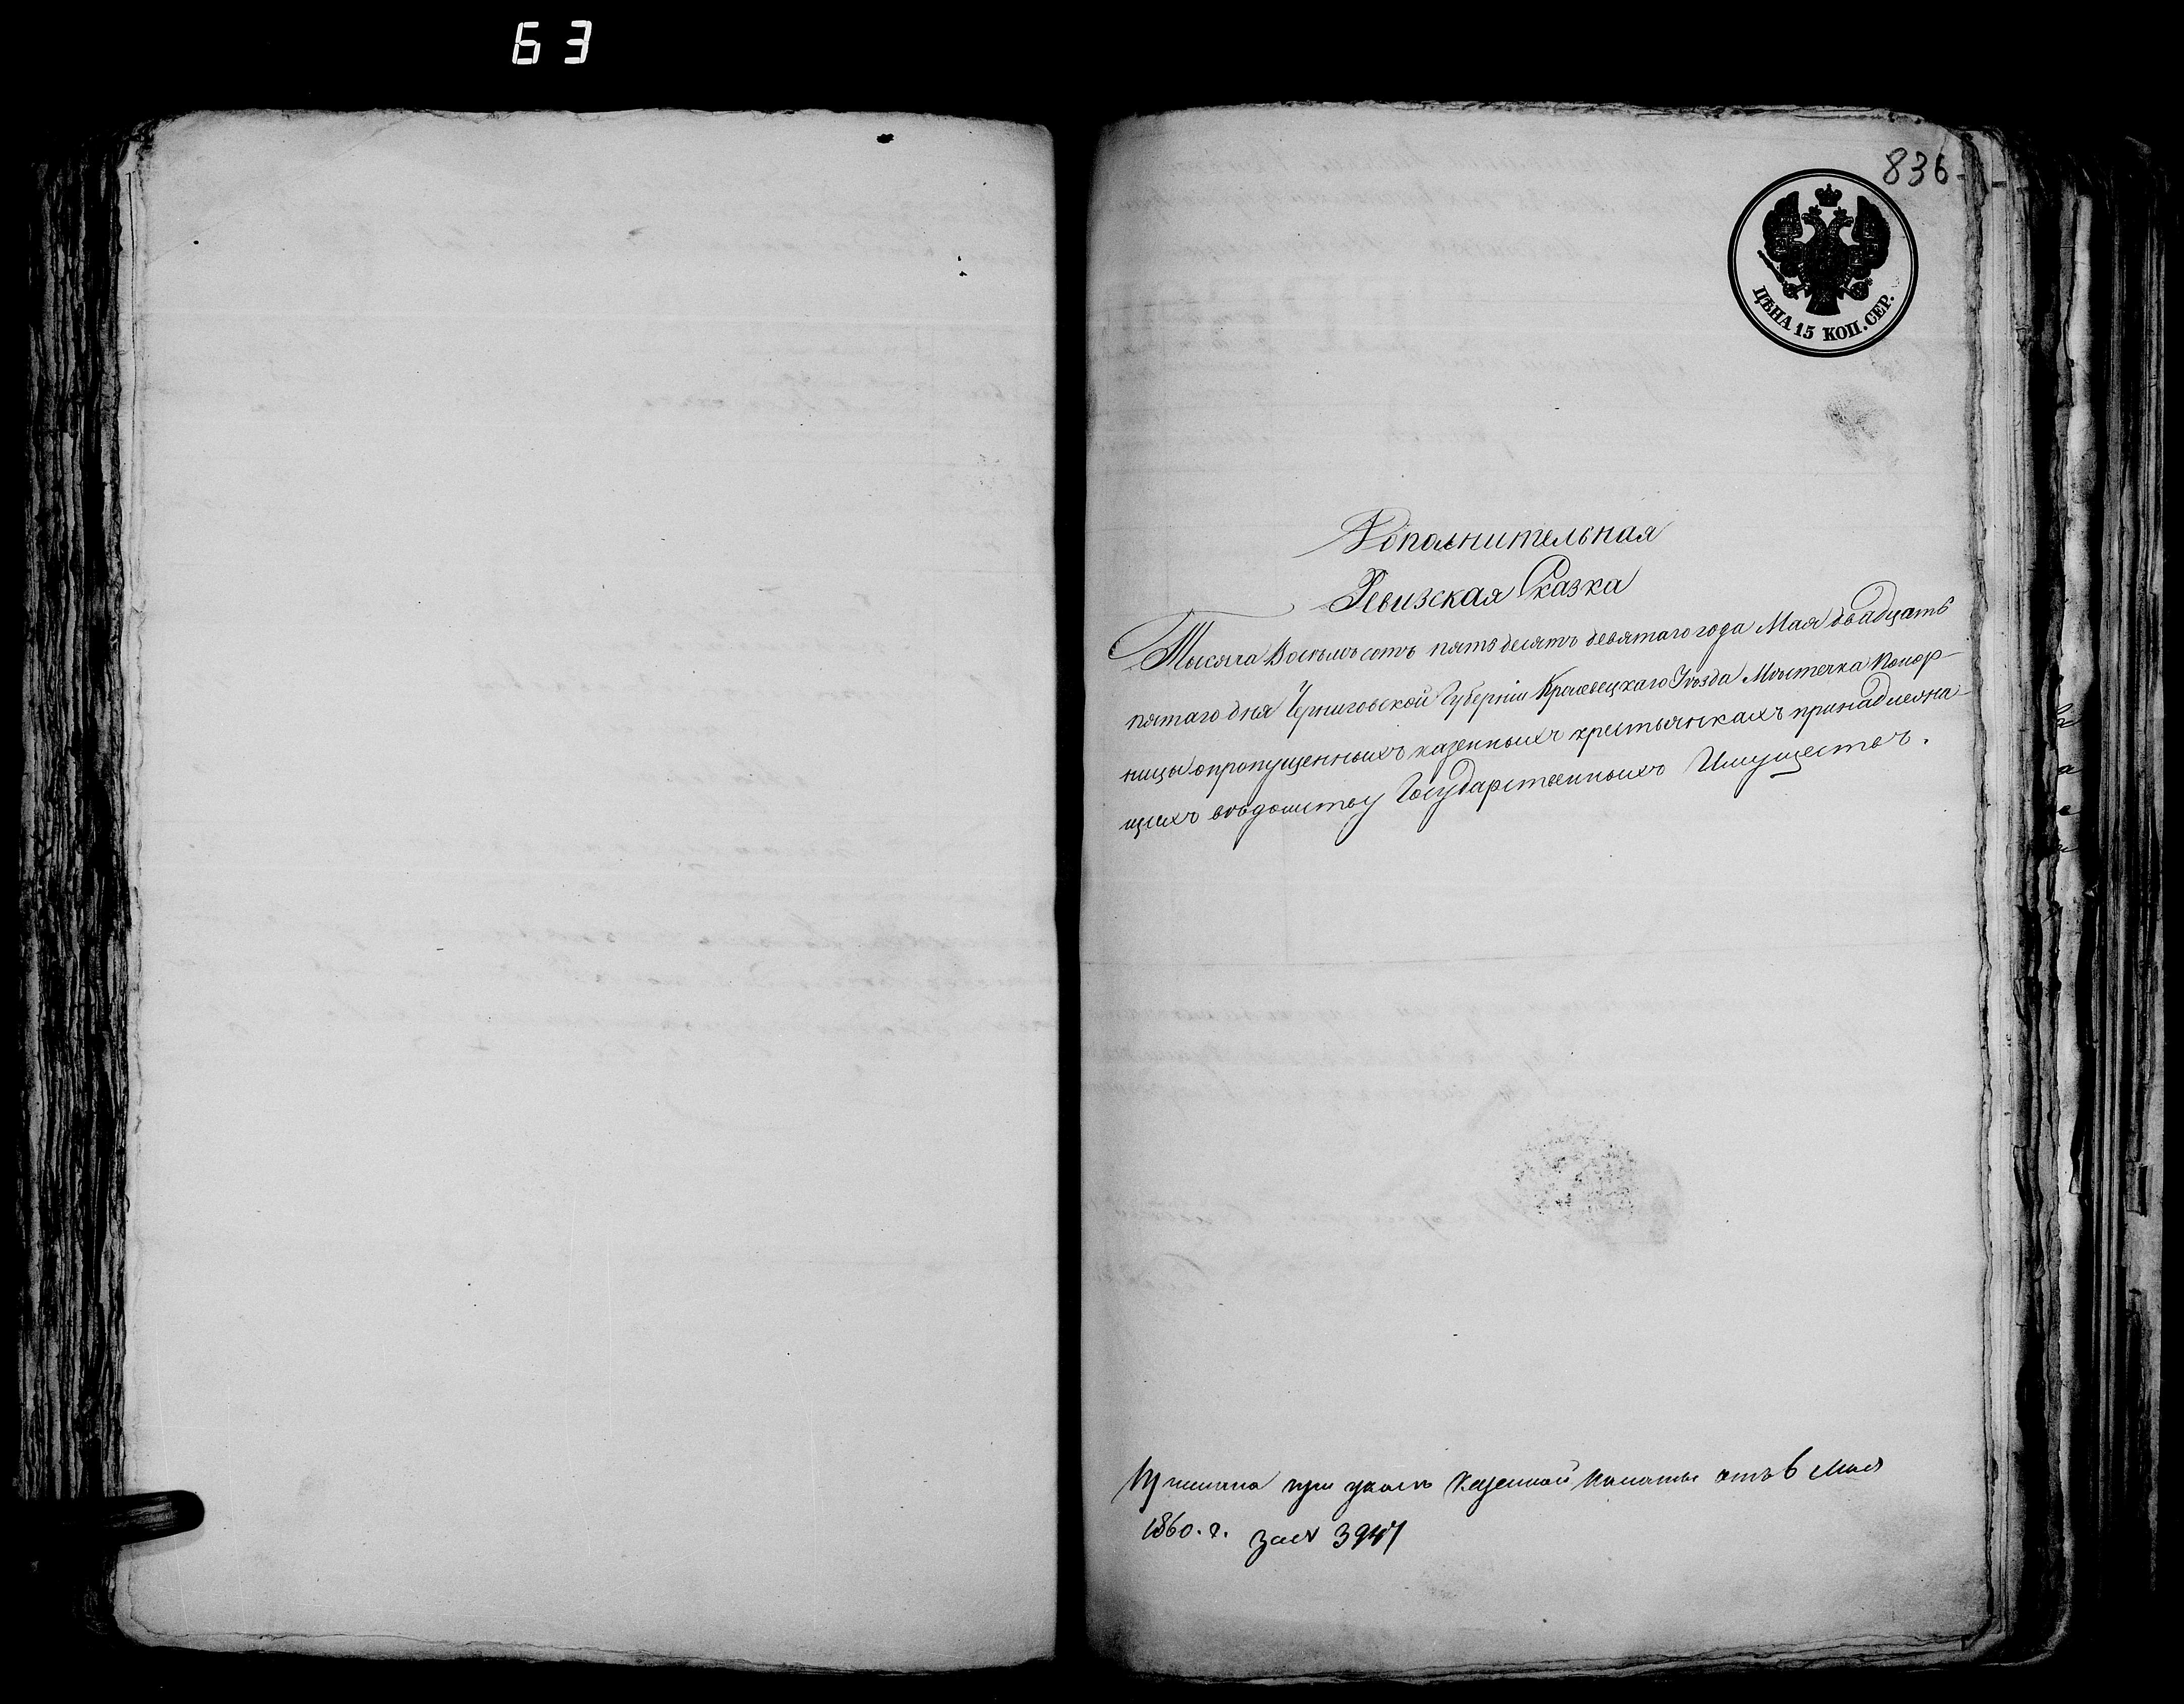 63
836
ЦѢНА 15 КОП. СЕР.
Дополнительная
Ревизская Сказка
Тысяча Восемьсотъ пятьдесятъ девятаго года Мая двадцать
пятаго дня Черниговской Губерніи Кролевецкаго Уѣзда Мѣстечка Коноп-
ницы о пропущенныхъ казенныхъ крестьянкахъ принадлежа-
щихъ вѣдомству Государственныхъ Имуществъ.
при указѣ Казенной Палаты отъ 6 Мая
1860. г. за № 3947